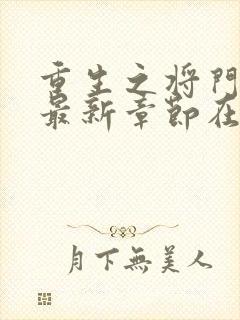 重生之将门
最新章節在
月下無美人